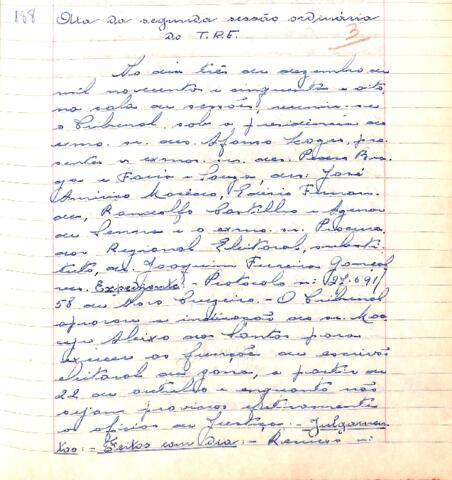 188 Ata da segunda sessão ordinária
do T.R.E. 3
No dia três de dezembro de
mil novecentos e cinquenta e oito,
na sala de sessões, reuniu-se
o Tribunal sob a presidência do
exmo. sr. des. Afonso Lages, pre-
sentes os exmos. srs. des. Pedro Bra-
ga e Faria e Souza, drs. José
Américo Macêdo, Edésio Fernan-
des, Randolfo Castilho e Agenor
de Senna e o exmo. sr. Procura-
dor Regional Eleitoral, substi-
tuto, dr. Joaquim Ferreira Gonçal-
ves. Expediente - Protocolo n: 27.691/
58 de - O Tribunal
aprovou a indicação do sr. Moa-
cyr Aleixo dos Santos para
exercer as funções de escrivão
eleitoral da zona, a partir de
22 de outubro e enquanto não
sejam providos efetivamente
os ofícios de Justiça. - Julgamen-
tos: - Feitos com dia: - Recurso n: